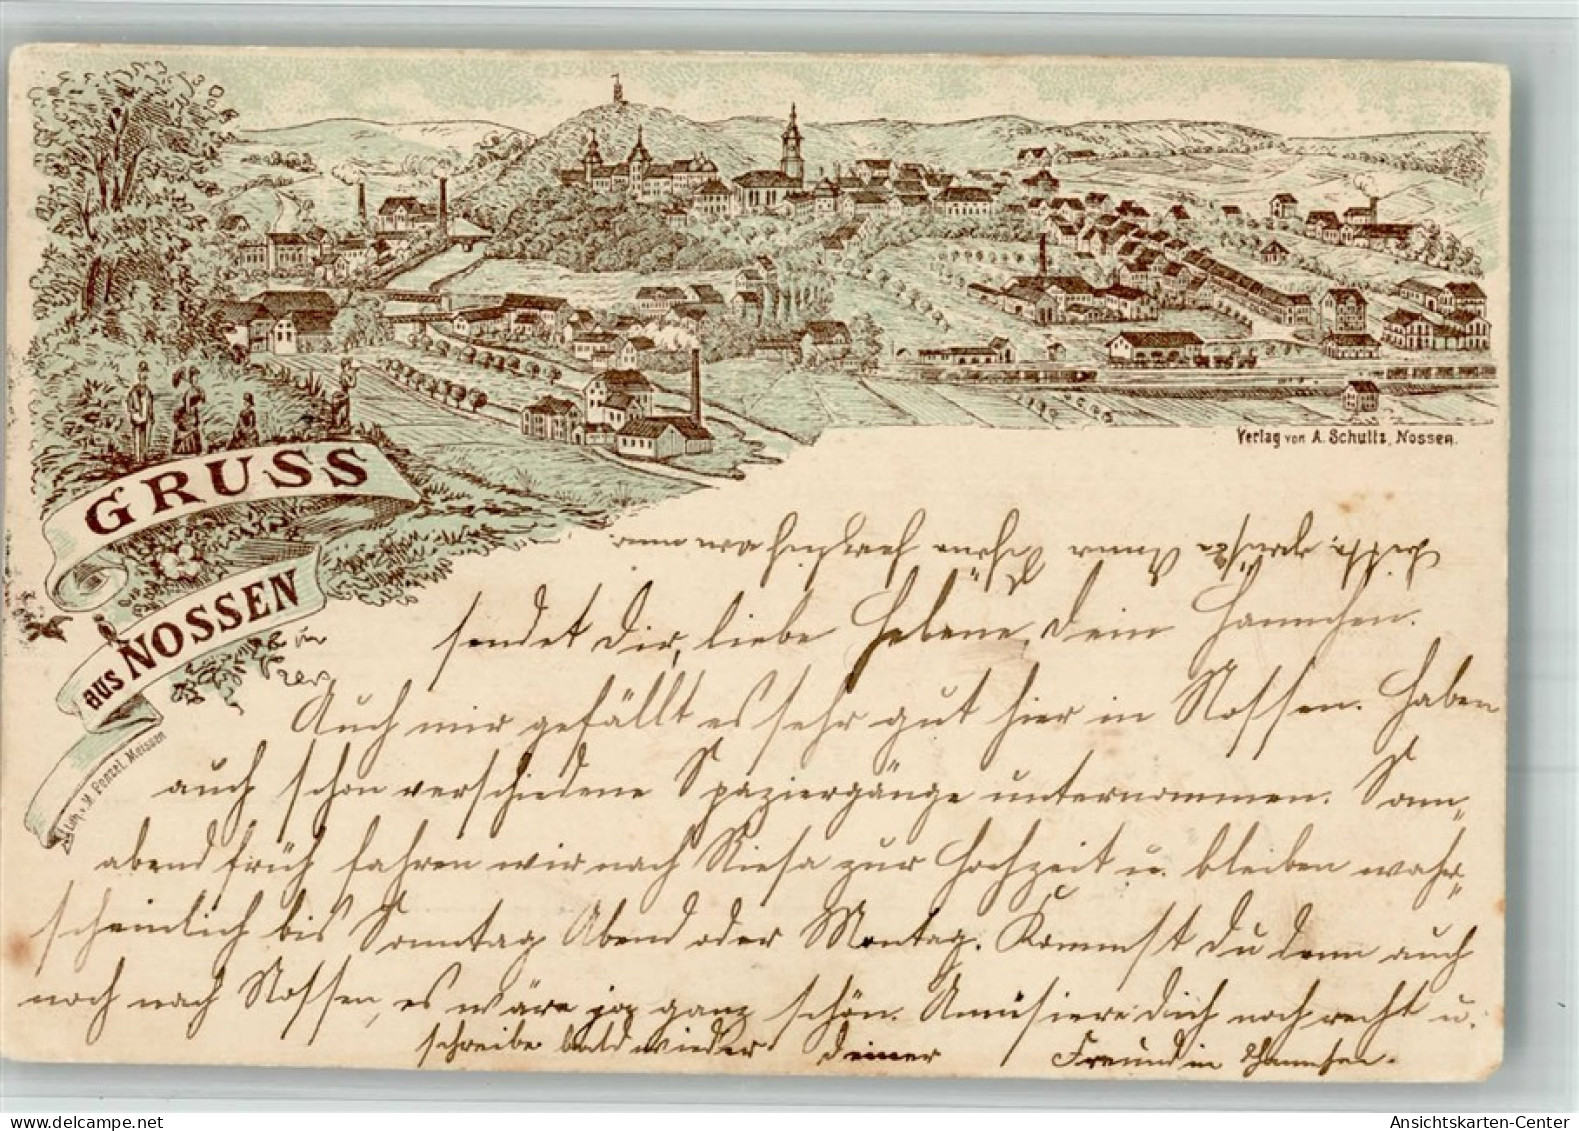 Verlag von A. Schultz, Nossen.
GRUSS
aus NOSSEN
Lith. v. M. Penzel. Meissen
sendet Dir, liebe Helene, Dein Hannchen.
Auch mir gefällt es sehr gut hier in Nossen. Haben
auch schon verschiedene Spaziergänge unternommen. Sonn„
abend früh fahren wir nach Riesa zur Hochzeit u. bleiben wahr„
scheinlich bis Sonntag Abend oder Montag. Kommst Du denn auch
noch nach Nossen, es wäre ja ganz schön. Amüsiere Dich noch recht u.
schreibe bald wieder Deiner Freundin Hannchen.
Ansichtskarten-Center
www.delcampe.net